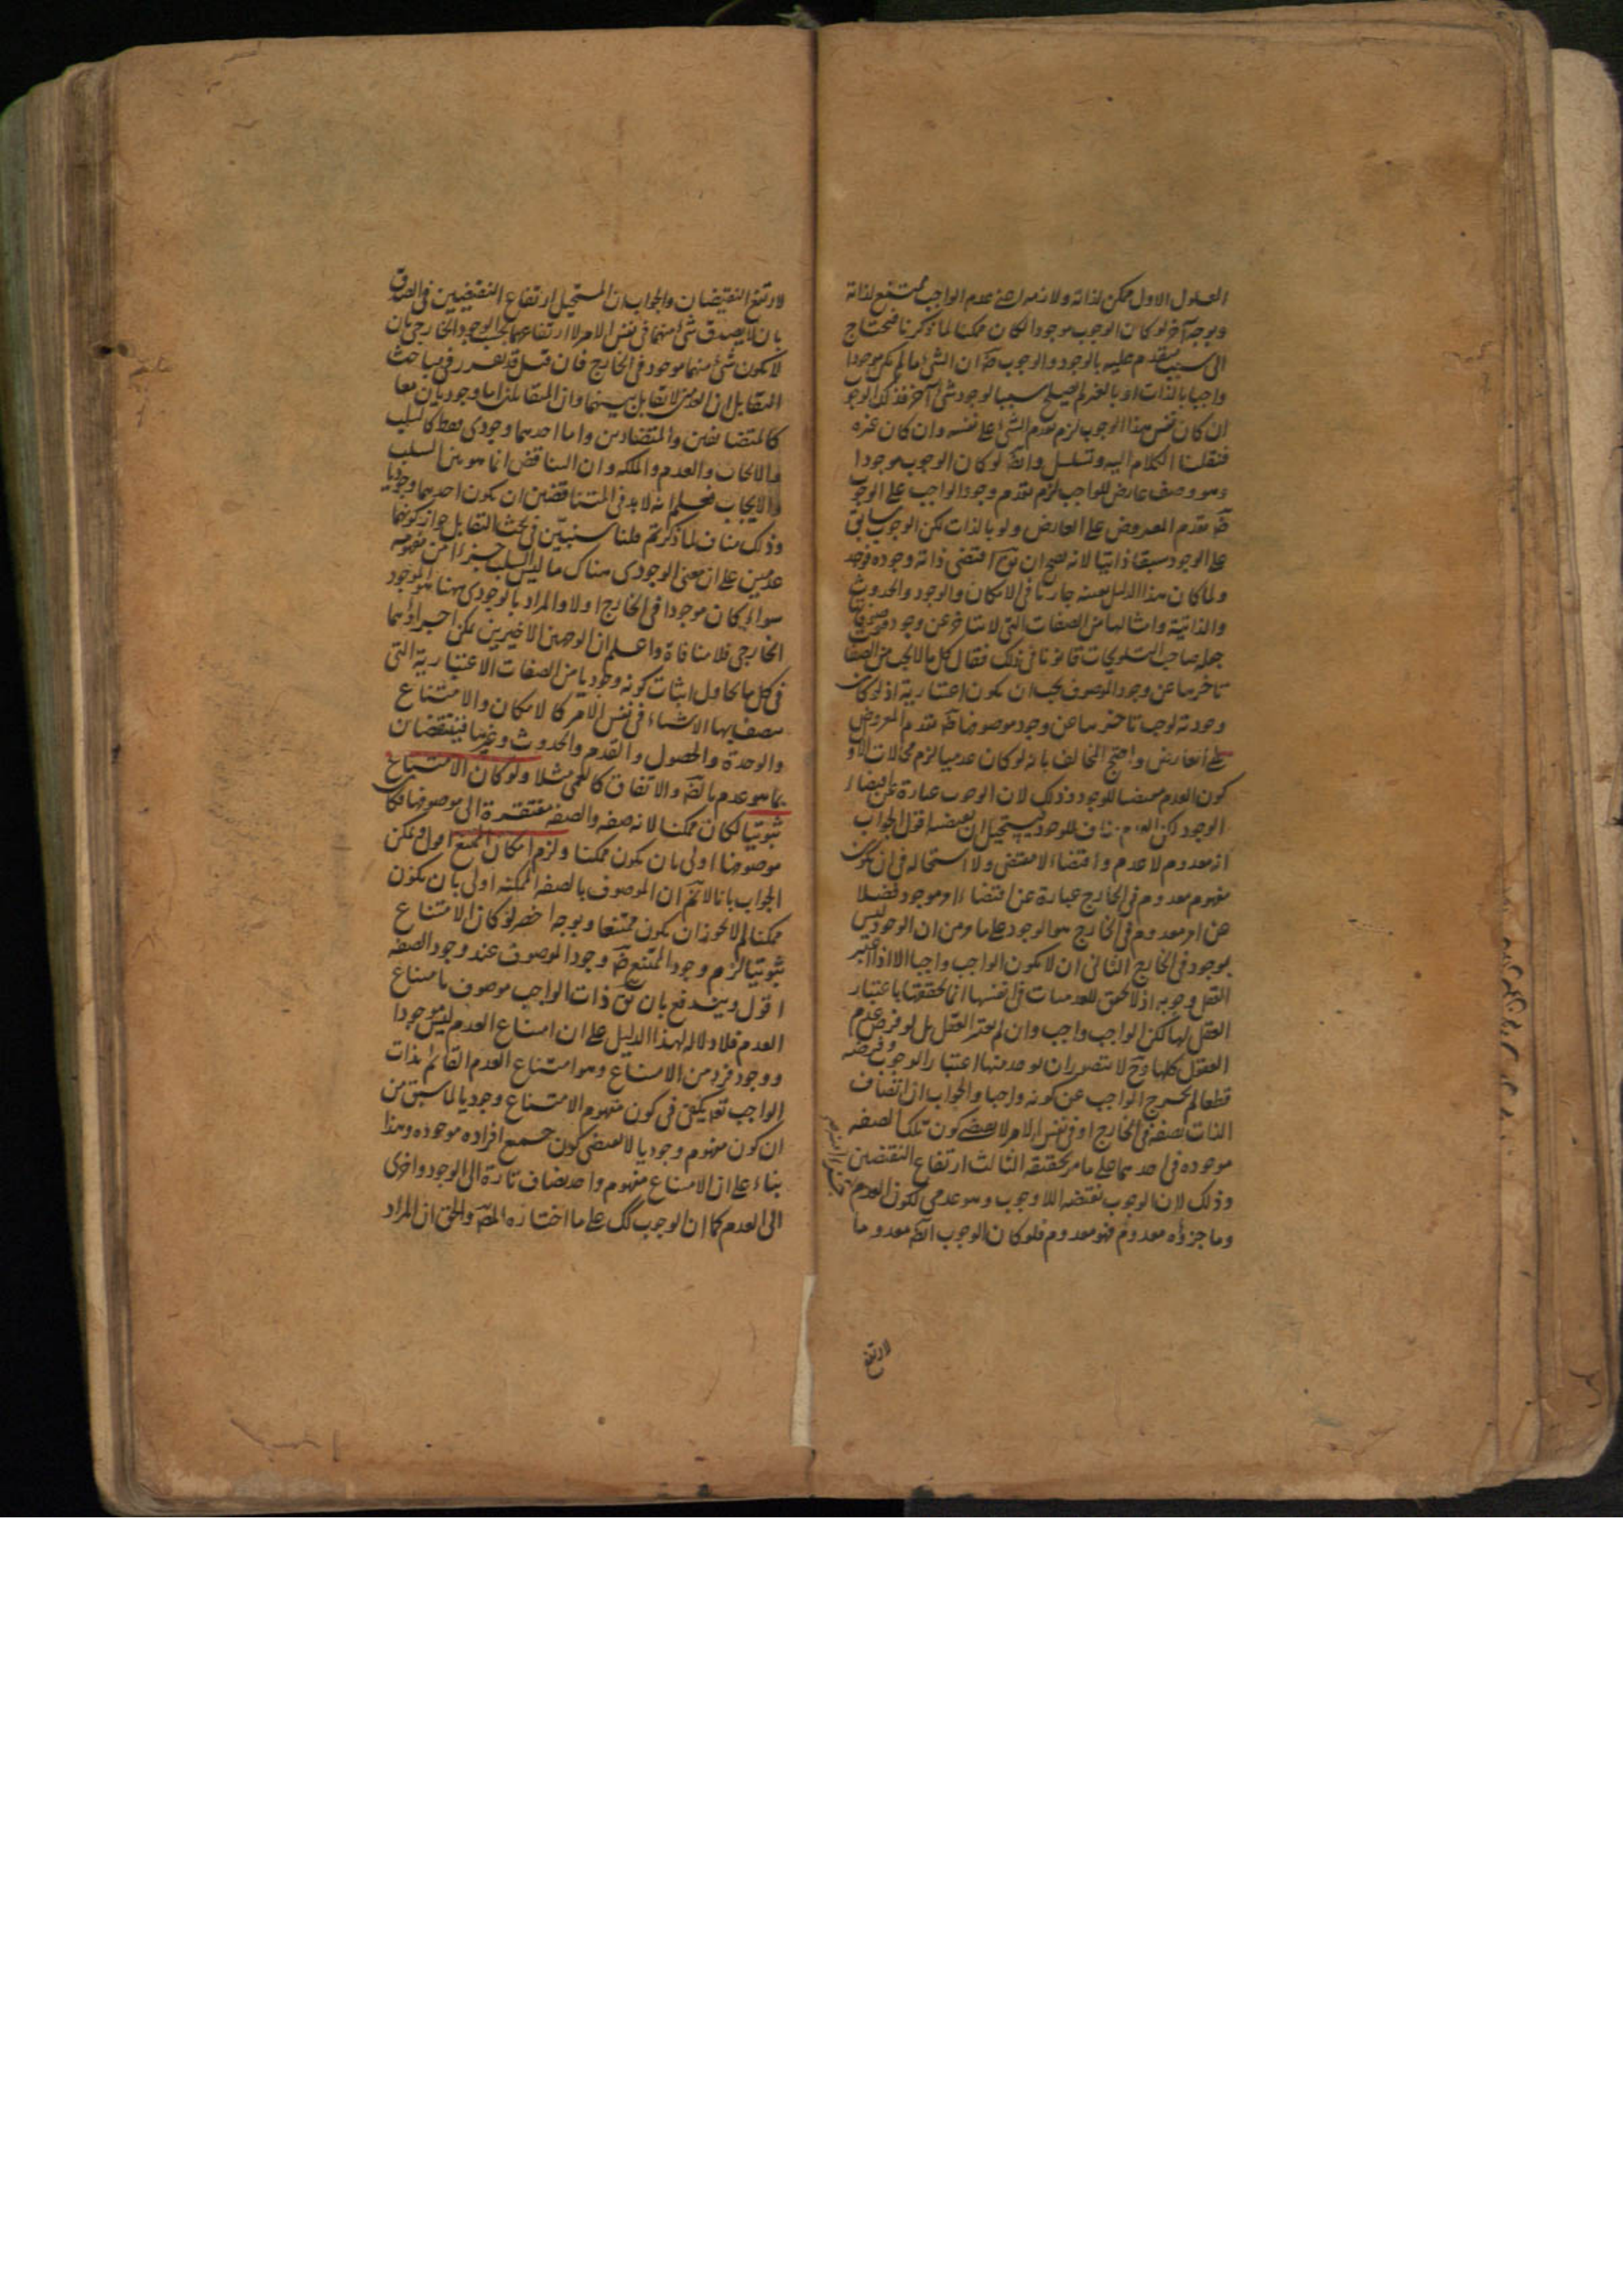 المعلول الاول ممكن لذاته ولازمه اعني عدم الواجب ممتنع لذاته
وبوجه آخر لو كان الوجوب موجودا لكان ممكنا لما ذكرنا فيحتاج
الى سبب يتقدم عليه بالوجود والوجوب ضَ ان الشئ ما لم يكن موجودا
واجبا بالذات او بالغير لم يصلح سببا لوجود شئ آخر فذلك الوجو
ان كان نفس هذا الوجوب لزم تقدم الشئ على نفسه وان كان غيره
فنقلنا الكلام اليه وتسلسل وايضَ لو كان الوجوب موجودا
وهو وصف عارض للواجب لزم تقدم وجود الواجب على الوجو
ضَ تقدم المعروض على العارض ولو بالذات لكن الوجوب سابق
على الوجود سبقا ذاتيا لانه يصح ان يقَ اقتضى ذاته وجوده فوجد
ولما كان هذا الدليل بعينه جاريا في الامكان والوجود والحدوث
والذاتية وامثالها من الصفات التي لا تتاخر عن وجود موصوفها
جعله صاحب التلويحات قانونا في ذلك فقال كل ما لا يجب من الصفا
تاخرها عن وجود الموصوف يجب ان يكون اعتبارية اذ لو كان
وجودية لوجب تاخرها عن وجود موصوفها ضَ تقدم المعروض
على العارض واحتج المخالف بانه لو كان عدميا لزم محالات الاو
كون العدم مقتضيا للوجود وذلك لان الوجوب عبارة عن اقتضاء
الوجود لكن العدم مناف للوجود فيستحيل ان يقتضيه اقول الجواب
انه معدوم لا عدم واقتضاء لا مقتضي ولا استحالة في ان يكون
مفهوم معدوم في الخارج عبارة عن اقتضاء امر موجود فضلا
عن امر معدوم في الخارج هو الوجود على ما مر من ان الوجود ليس
بموجود في الخارج الثاني ان لا يكون الواجب واجبا الا اذا اعتبر
العقل وجوبه اذ لا تحقق للعدميات في انفسها انما تحققها باعتبار
العقل لها لكن الواجب واجب وان لم يعتبر العقل بل لو فرض عدم
العقول كلها وحَ لا يتصور ان يوجد منها اعتبار الوجوب وفرضه
قطعا لم يخرج الواجب عن كونه واجبا والجواب ان اتصاف
الذات بصفة في الخارج او في نفس الامر لا يقتضي كون تلك الصفة
موجودة في احدهما على ما مر تحقيقه الثالث ارتفاع النقيضين
وذلك لان الوجوب نقيضه اللاوجوب وهو عدمي لكون العدم
وما جزؤه معدوم فهو معدوم فلو كان الوجوب ايضَ معدوما
لارتفع
لارتفع النقيضان والجواب ان المستحيل ارتفاع النقيضين في الصدق
بان لا يصدق شئ منهما في نفس الامر لا ارتفاعهما بحسب الوجود الخارجي بان
لا يكون شئ منهما موجود في الخارج فان قيل قد تقرر في مباحث
التقابل ان العدمين لا تقابل بينهما وان المتقابلين اما وجوديان معا
كالمتضائفين والمتضادين واما احدهما وجودي فقط كالسلب
والايجاب والعدم والملكة وان التناقض انما هو بين السلب
والايجاب فعلم انه لا بد في المتناقضين ان يكون احدهما وجوديا
وذلك مناف لما ذكرتم قلنا سنبين في بحث التقابل جواز كونهما
عدميين على ان معنى الوجودي هناك ما ليس السلب جزءا من مفهومه
سواء كان موجودا في الخارج او لا والمراد بالوجودي ههنا الموجود
الخارجي فلا منافاة واعلم ان الوجهين الاخيرين يمكن اجراؤهما
في كل ما يحاول اثبات كونه وجوديا من الصفات الاعتبارية التي
يتصف بها الاشياء في نفس الامر كالامكان والامتناع
والوحدة والحصول والقدم والحدوث وغيرها فينتقضان
بما هو عدم بالضَ والاتفاق كالعمى مثلا ولو كان الامتناع
ثبوتيا لكان ممكنا لانه صفة والصفة مفتقرة الى موصوفها فكا
موصوفها اولى بان يكون ممكنا ولزم امكان الممتنع اقول ويمكن
الجواب بانا لا نمَ ان الموصوف بالصفة الممكنة اولى بان يكون
ممكنا لم لا يجوز ان يكون ممتنعا وبوجه اخصر لو كان الامتناع
ثبوتيا لزم وجود الممتنع ضَ وجود الموصوف عند وجود الصفة
اقول ويندفع بان يقَ ذات الواجب موصوف بامتناع
العدم فلا دلالة لهذا الدليل على ان امتناع العدم ليس موجودا
ووجود فرد من الامتناع وهو امتناع العدم القائم بذات
الواجب تعَ يكفي في كون مفهوم الامتناع وجوديا لما سبق من
ان كون مفهوم وجوديا لا يقتضي كون جميع افراده موجودة وهذا
بناء على ان الامتناع مفهوم واحد يضاف تارة الى الوجود واخرى
الى العدم كما ان الوجوب كك على ما اختاره المصَ والحق ان المراد